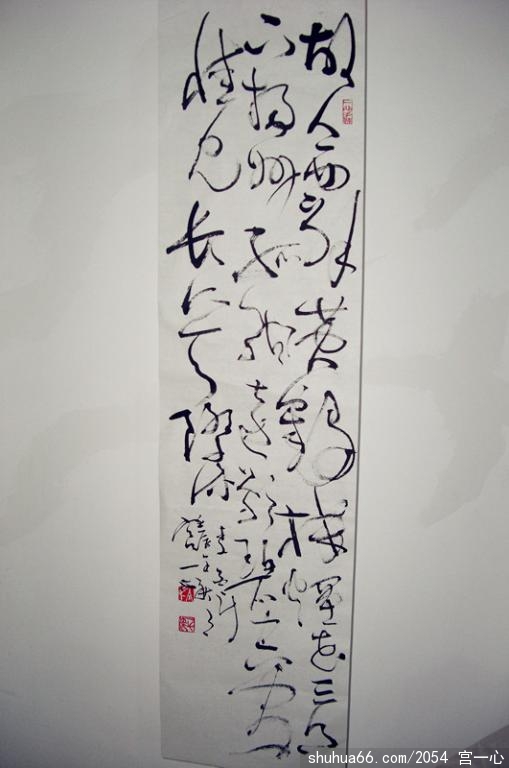 故人西辞黄鹤楼烟花三月
下扬州孤帆远影碧空尽
惟见长江天际流
李白诗
宫一心
shuhua66.com/2054 宫一心